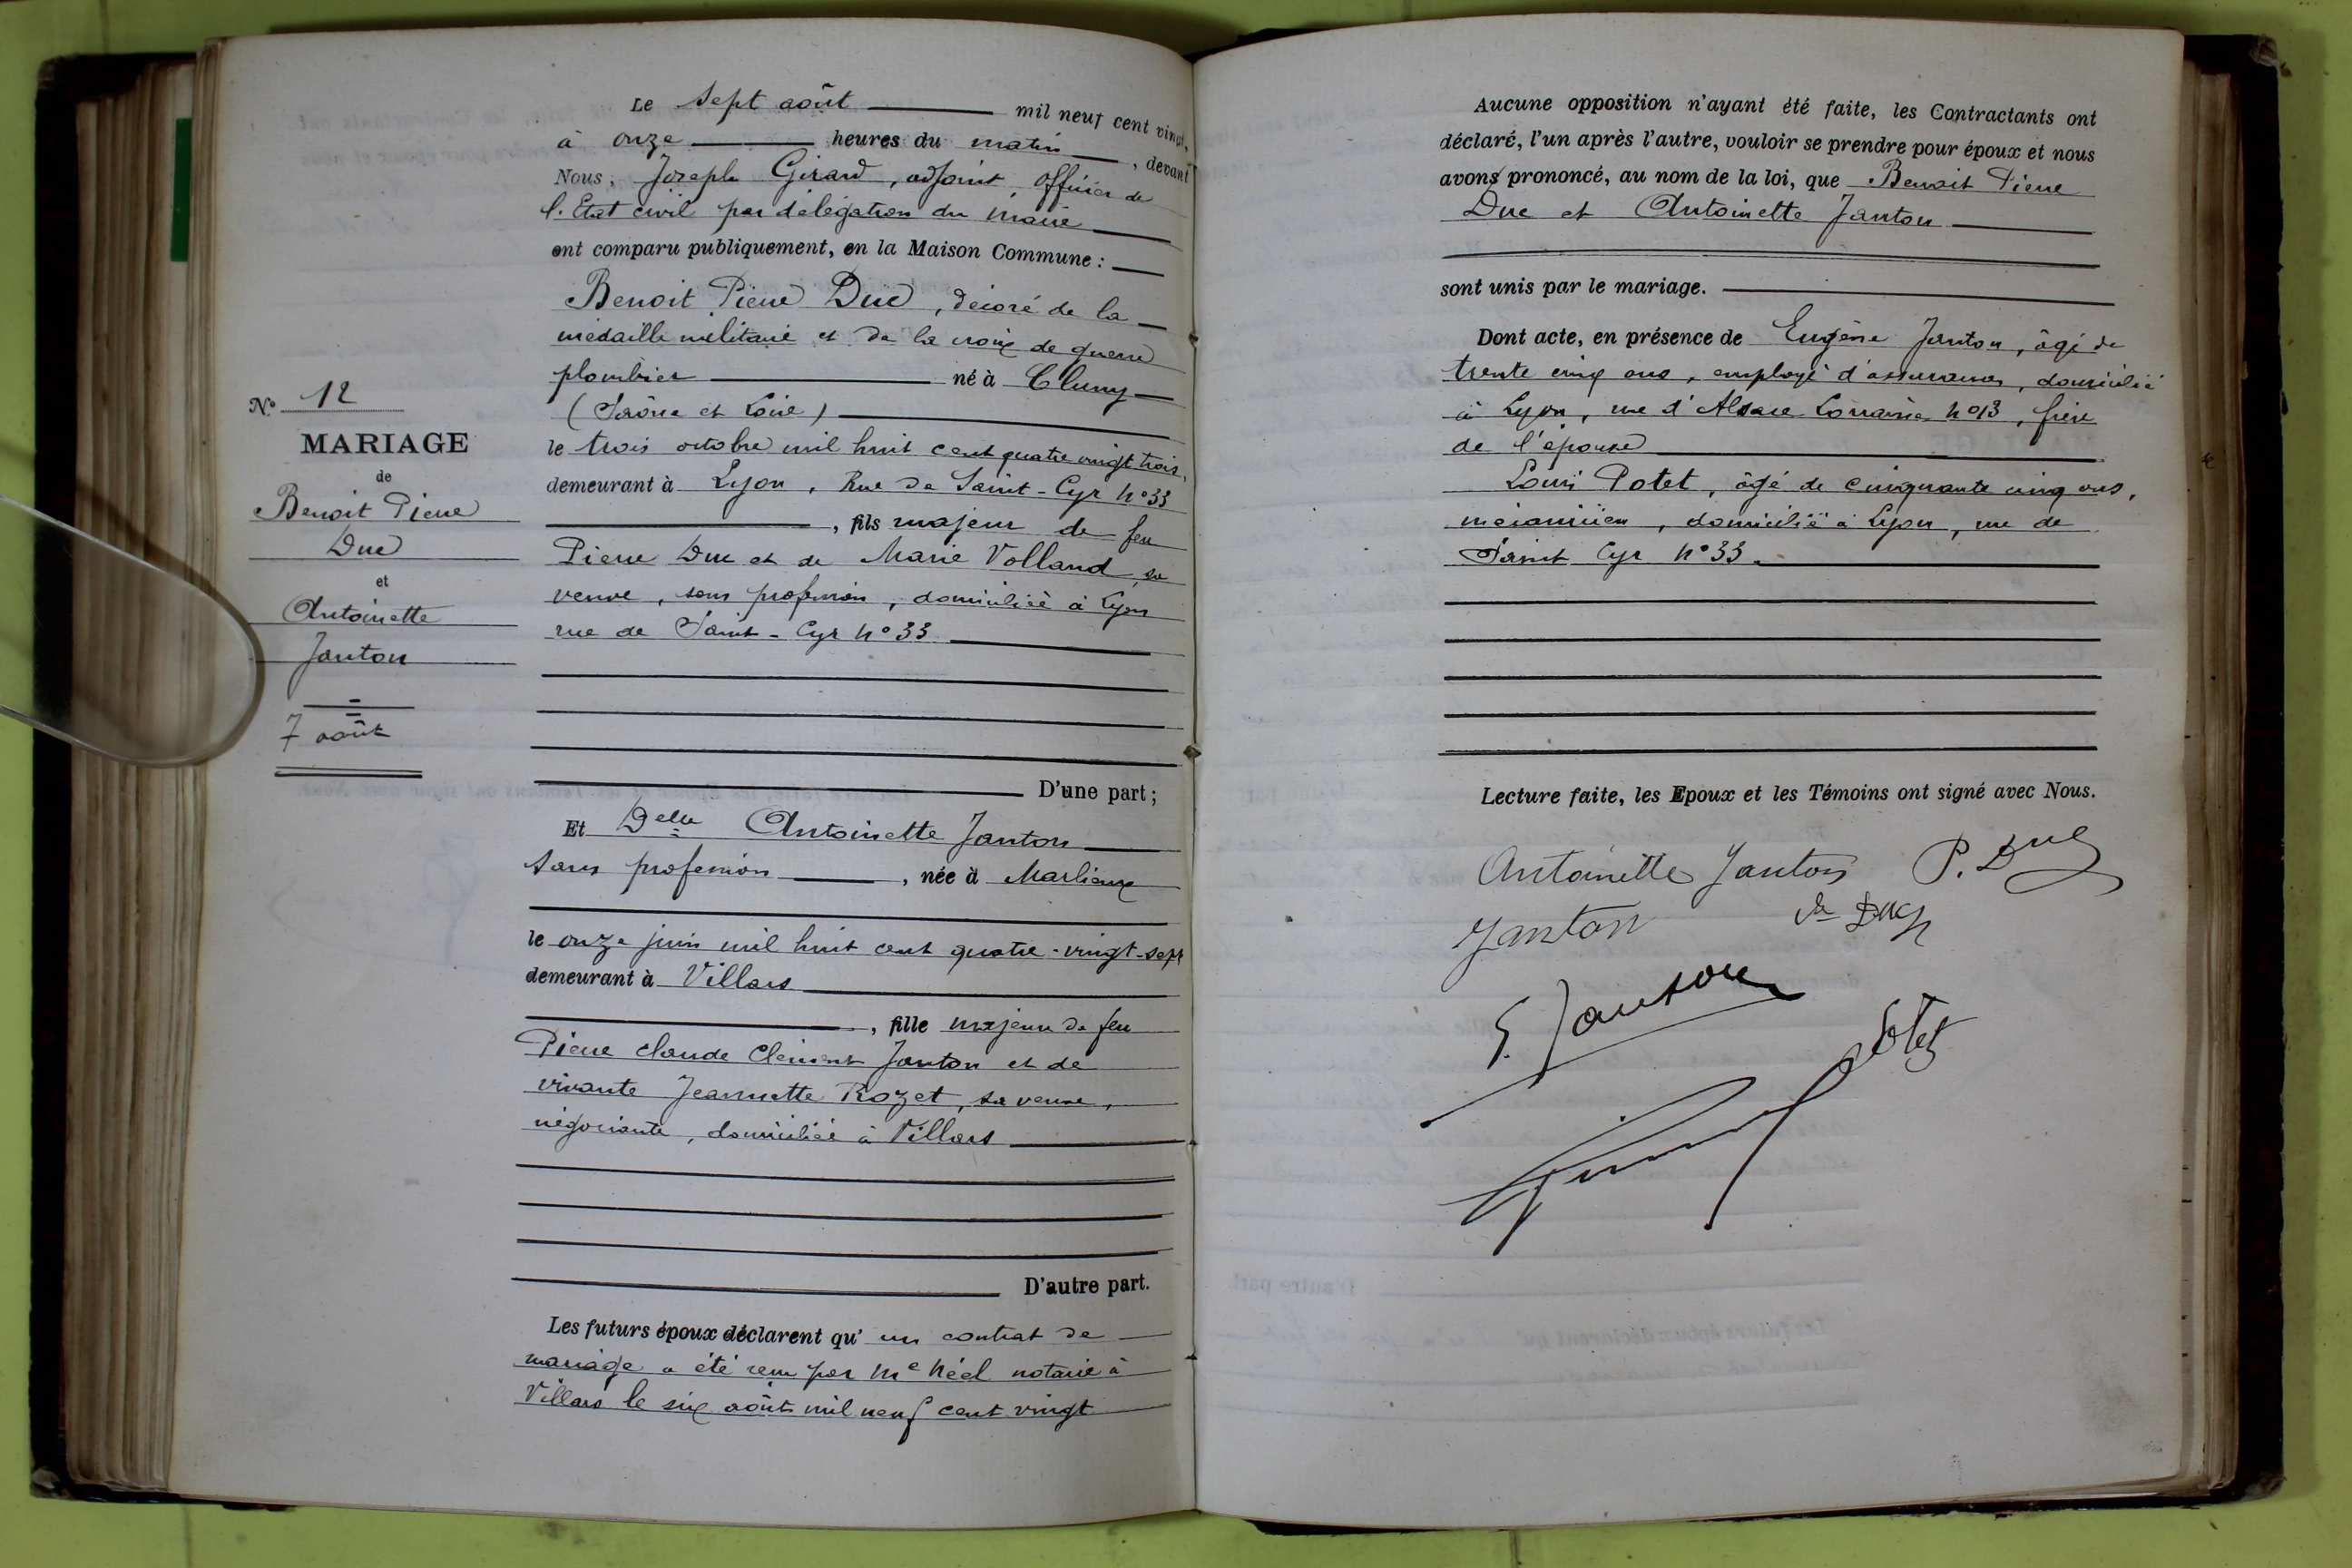 N.º 12
MARIAGE
de
Benoit Pierre
Duc
et
Antoinette
Janton
7 août
Le sept août mil neuf cent vingt,
à onze heures du matin, devant
Nous, Joseph Girard, adjoint, officier de
l'Etat civil par délégation du maire
ont comparu publiquement, en la Maison Commune :
Benoit Pierre Duc, décoré de la
médaille militaire et de la croix de guerre
plombier né à Cluny
(Saône et Loire)
le trois octobre mil huit cent quatre vingt trois,
demeurant à Lyon, Rue de Saint-Cyr nº 33
, fils majeur de feu
Pierre Duc et de Marie Volland, sa
veuve, sans profession, domiciliée à Lyon
rue de Saint-Cyr nº 33
D'une part ;
Et Delle Antoinette Janton
sans profession, née à Marlieux
le onze juin mil huit cent quatre-vingt-sept
demeurant à Villars
, fille majeure de feu
Pierre Claude Clément Janton et de
vivante Jeannette Rozet, sa veuve,
négociante, domiciliée à Villars
D'autre part.
Les futurs époux déclarent qu' un contrat de
mariage a été reçu par Me Néel notaire à
Villars le six août mil neuf cent vingt
Aucune opposition n'ayant été faite, les Contractants ont
déclaré, l'un après l'autre, vouloir se prendre pour époux et nous
avons prononcé, au nom de la loi, que Benoit Pierre
Duc et Antoinette Janton
sont unis par le mariage.
Dont acte, en présence de Eugène Janton, âgé de
trente cinq ans, employé d'assurances, domicilié
à Lyon, rue d'Alsace Lorraine nº 13, frère
de l'épouse
Louis Potet, âgé de cinquante cinq ans,
mécanicien, domicilié à Lyon, rue de
Saint Cyr nº 33.
Lecture faite, les Epoux et les Témoins ont signé avec Nous.
Antoinette Janton P. Duc
Janton Ve Duc
E. Janton
Potet
Girard